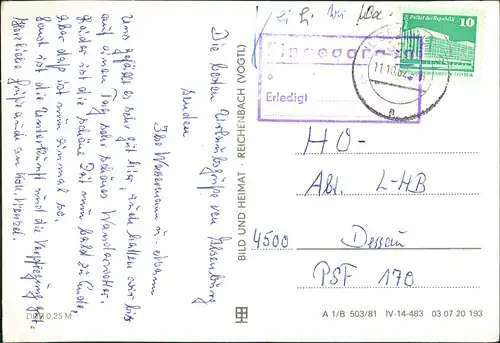 Die besten Urlaubsgrüße von Ilsenburg
senden
Uns gefällt es sehr gut hier, auch hatten wir bis
auf einen Tag sehr schönes Wanderwetter.
Leider ist die schöne Zeit nun bald zu Ende,
aber das ist nun einmal so.
Sonst sind die Unterkunft und die Verpflegung gut.
Herzliche Grüße auch an Koll.
DDR 0,25 M
BILD UND HEIMAT REICHENBACH (VOGTL)
Eingegangen
Erledigt
11.10.82
Palast der Republik
10
HO-
Abt. L-HB
4500 Dessau
PSF 170
A 1/B 503/81 IV-14-483 03 07 20 193